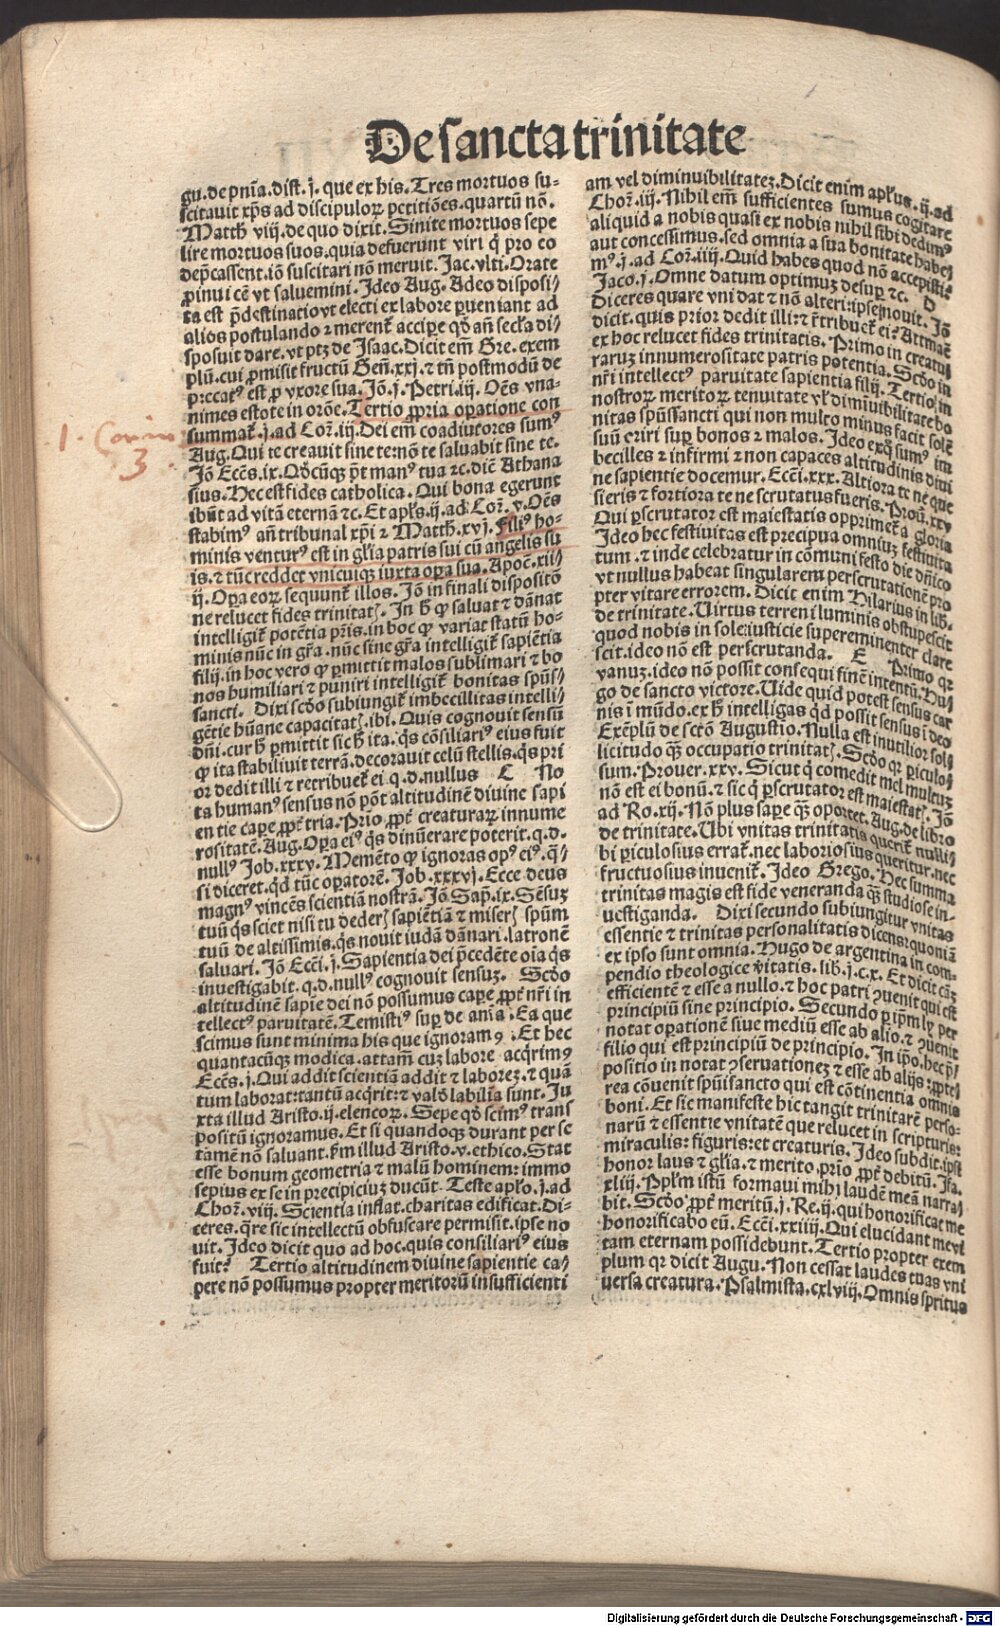 De sancta trinitate
gu. de pnīa. dist. j. que ex his. Tres mortuos su-
scitavit xp̄s ad discipuloꝝ petitiōes. quartū nō.
Matth̄ viij. de quo dixit. Sinite mortuos sepe
lire mortuos suos. quia defuerunt viri q̄ pro eo
dep̄cassent. iō suscitari nō meruit. Jac. vlti. Orate
ꝓ inuicē vt saluemini. Ideo Aug. Adeo disposi-
ta est p̄destinatio vt electi ex labore ꝑueniant ad
alios postulando ⁊ merent̄ accipe qd̄ an̄ secła di/
sposuit dare. vt ptꝫ de Isaac. Dicit em̄ Gre. exem
plū. cui ꝓmisit fructū Gen̄. xxj. ⁊ tn̄ postmodū de
p̄ccatꝰ est ꝓ vxore sua. Jō. j. Petri. iij. Oēs vna-
nimes estote in orōe. Tertio ꝓpria oꝑatione con
summat̄. j. ad Cor̄. iij. Dei em̄ coadiutores sumꝰ
1. Corin
3
Aug. Qui te creauit sine te: nō te saluabit sine te.
Jō Eccs̄. ix. Qd̄cūqꝫ p̄t manꝰ tua ⁊c. diē Athana
sius. Hec est fides catholica. Qui bona egerunt
ibūt ad vitā eternā ⁊c. Et apłs. ij. ad Cor̄. v. Oēs
stabimꝰ an̄ tribunal xp̄i ⁊ Matth̄. xvj. Filiꝰ ho-
minis venturꝰ est in gl̄ia patris sui cū angelis su
is. ⁊ tūc reddet vnicuiqꝫ iuxta oꝑa sua. Apoc̄. xii/
ij. Oꝑa eoꝝ sequunt̄ illos. Jō in finali dispositō
ne relucet fides trinitatꝭ. In h̄ ꝙ saluat ⁊ dānat
intelligit̄ potētia pr̄is. in hoc ꝙ variat statū ho-
minis nūc in gr̄a. nūc sine gr̄a intelligit̄ sapiētia
filij. in hoc vero ꝙ ꝑmittit malos sublimari ⁊ bo
nos humiliari ⁊ puniri intelligit̄ bonitas spūs/
sancti. Dixi scd̄o subiungit̄ imbecillitas intelli/
gētie hūane capacitatꝭ. ibi. Quis cognouit sensū
dn̄i. cur h̄ ꝑmittit sic h̄ ita. q̄s cōsiliariꝰ eius fuit
ꝙ ita stabiliuit terrā. decorauit celū stellis. q̄s pri
or dedit illi ⁊ retribuet̄ ei q. d. nullus C No
ta humanꝰ sensus nō pōt altitudinē diuine sapi
entie cape ꝓpt̄ tria. Prīo ꝓpt̄ creaturaꝝ innume
rositatē. Aug. Oꝑa eiꝰ q̄s dinūerare poterit. q. d.
nullꝰ Job. xxxv. Memēto ꝙ ignoras opꝰ eiꝰ. q̄/
si diceret. qd̄ tūc oꝑatorē. Job. xxxvj. Ecce deus
magnꝰ vincēs scientiā nostrā. Jō Sap̄. ix. Sēsuꝫ
tuū q̄s sciet nisi tu dederꝭ sapiētiā ⁊ miserꝭ spūm
tuū de altissimis. q̄s nouit iudā dānari. latronē
saluari. Jō Ecci. j. Sapientia dei p̄cedēte oīa q̄s
inuestigabit. q. d. nullꝰ cognouit sensuꝫ. Scd̄o
altitudinē sapīe dei nō possumus cape ꝓpt̄ nr̄i in
tellectꝰ paruitatē. Temistiꝰ suꝑ de an̄ia. Ea que
scimus sunt minima his que ignoramꝰ. Et hec
quantacūqꝫ modica. attam̄ cuꝫ labore acq̄rimꝰ
Eccs̄. j. Qui addit scientiā addit ⁊ laboreꝫ. ⁊ quā
tum laborat: tantū acq̄rit: ⁊ valō labilia sunt. Ju
xta illud Aristo. ij. elencoꝝ. Sepe qd̄ scimꝰ trans
positū ignoramus. Et si quandoqꝫ durant per se
tamē nō saluant. ꝑm illud Aristo. v. ethico. Stat
esse bonum geometria ⁊ malū hominem: immo
sepius ex se in precipiciuꝫ ducūt. Teste apło. j. ad
Chor̄. viij. Scientia inflat. charitas edificat. Di-
ceres. q̄re sic intellectū obfuscare permisit. ipse no
uit. Ideo dicit quo ad hoc. quis consiliariꝰ eius
fuit? Tertio altitudinem diuine sapientie ca/
pere nō possumus propter meritorū insufficienti
am vel diminuibilitateꝫ. Dicit enim apłus. ij. ad
Chor̄. iij. Nihil em̄ sufficientes sumus cogitare
aliquid a nobis quasi ex nobis nihil sibi dedimꝰ
aut concessimus. sed omnia a sua bonitate habe/
mꝰ. j. ad Cor̄. iiij. Quid habes quod nō accepisti.
Jaco. j. Omne datum optimuꝫ desuꝑ ⁊c. D
Diceres quare vni dat ⁊ nō alteri: ipse nouit. Jō
dicit. quis prior dedit illi: ⁊ r̄tribuet̄ ei? Attmē
ex hoc relucet fides trinitatis. Primo in creatu/
raruꝫ innumerositate patris potentia. Scd̄o in
nr̄i intellectꝰ paruitate sapientia filij. Tertio in
nostroꝝ meritoꝝ tenuitate vl̄ diminuibilitate bo
nitas spūssancti qui non multo minus facit solē
suū oriri suꝑ bonos ⁊ malos. Ideo exq̄ sumꝰ im
becilles ⁊ infirmi ⁊ non capaces altitudinis diui
ne sapientie docemur. Ecci. xxx. Altiora te ne que
sieris ⁊ fortiora te ne scrutatus fueris. Prou. xxv
Qui ꝑscrutator est maiestatis opprimet̄ a gloria
Ideo hec festiuitas est precipua omniuꝫ festiuita
tum. ⁊ inde celebratur in cōmuni festo die dn̄ico
vt nullus habeat singularem perscrutationē pro
pter vitare errorem. Dicit enim Hilarius in lib.
de trinitate. Virtus terreni luminis obstupescit
quod nobis in sole: iusticie supereminenter clare
scit. ideo nō est perscrutanda. E Primo qꝛ
vanuꝫ. ideo nō possit consequi finē intentū. Hu/
go de sancto victore. Vide quid potest sensus car
nis ī mūdo. ex h̄ intelligas qd̄ possit sensus ī deo
Exēplū de sct̄o Augustio. Nulla est inutilior soli/
licitudo qꝫ̄ occupatio trinitatꝭ. Scd̄o qꝛ ꝑiculo/
sum. Prouer. xxv. Sicut q̄ comedit mel multuꝫ
nō est ei bonū. ⁊ sic q̄ ꝑscrutator est maiestatꝭ. Jō
ad Ro. xij. Nō plus saꝑe qꝫ̄ oportet. Aug. de libro
de trinitate. Ubi vnitas trinitatis querit̄ nulli/
bi ꝑiculosius errat̄. nec laboriosius queritur. nec
fructuosius inuenit̄. Ideo Grego. Hec summa
trinitas magis est fide veneranda qꝫ̄ studiose in-
uestiganda. Dixi secundo subiungitur vnitas
essentie ⁊ trinitas personalitatis dicens: quoniā
ex ipso sunt omnia. Hugo de argentina in com-
pendio theologice v̄itatis. lib. j. c. x. Et dicit cāꝫ
efficientē ⁊ esse a nullo. ⁊ hoc patri ꝯuenit qui est
principiū sine principio. Secundo ꝑ ip̄m ly per
notat oꝑationē siue mediū esse ab alio. ⁊ ꝯuenit
filio qui est principiū de principio. In ip̄o. hec p̄/
positio in notat ꝯseruationeꝫ ⁊ esse ab alijs: ꝓpte/
rea cōuenit spūisancto qui est cōtinentia omnis
boni. Et sic manifeste hic tangit trinitarē perso-
narū ⁊ essentie vnitatē que relucet in scripturis:
miraculis: figuris: et creaturis. Ideo subdit. ipsi
honor laus ⁊ gl̄ia. ⁊ merito. prīo ꝓpt̄ debitū. Jsa.
xliij. Pplm̄ istū formaui mihi laudē meā narra/
bit. Scd̄o ꝓpt̄ meritū. j. Re. ij. qui honorificat me
honorificabo eū. Ecci. xxiiij. Qui elucidant me vi
tam eternam possidebunt. Tertio propter exem
plum qꝛ dicit Augu. Non cessat laudes tuas vni
uersa creatura. Psalmista. cxlviij. Omnis spritus
Digitalisierung gefördert durch die Deutsche Forschungsgemeinschaft - DFG